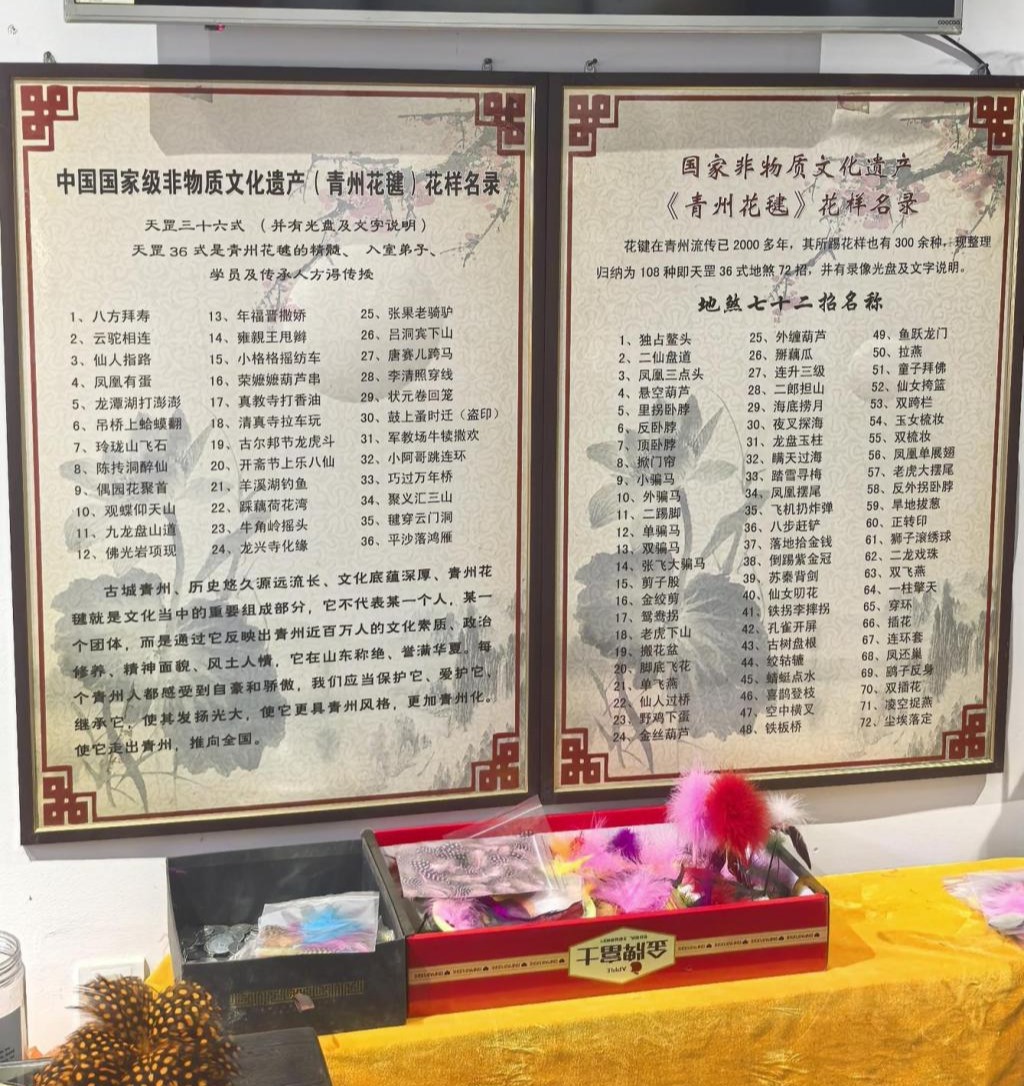 中国国家级非物质文化遗产（青州花毽）花样名录
天罡三十六式 （并有光盘及文字说明）
天罡 36 式是青州花毽的精髓、 入室弟子、
学员及传承人方得传授
1、八方拜寿
2、云驼相连
3、仙人指路
4、凤凰有蛋
5、龙潭湖打澎澎
6、吊桥上蛤蟆翻
7、玲珑山飞石
8、陈抟洞醉仙
9、偶园花聚首
10、观蝶仰天山
11、九龙盘山道
12、佛光岩项现
13、年福晋撒娇
14、雍親王甩辫
15、小格格摇纺车
16、荣嬷嬷葫芦串
17、真教寺打香油
18、清真寺拉车玩
19、古尔邦节龙虎斗
20、开斋节上乐八仙
21、羊溪湖钓鱼
22、踩藕荷花湾
23、牛角岭摇头
24、龙兴寺化缘
25、张果老骑驴
26、吕洞宾下山
27、唐赛儿跨马
28、李清照穿线
29、状元卷回笼
30、鼓上蚤时迁（盗印）
31、军教场牛犊撒欢
32、小阿哥跳连环
33、巧过万年桥
34、聚义汇三山
35、毽穿云门洞
36、平沙落鸿雁
古城青州、历史悠久源远流长、文化底蕴深厚、青州花
毽就是文化当中的重要组成部分，它不代表某一个人，某一
个团体，而是通过它反映出青州近百万人的文化素质、政治
修养、精神面貌、风土人情，它在山东称绝、誉满华夏。每
个青州人都感受到自豪和骄傲，我们应当保护它、爱护它、
继承它，使其发扬光大，使它更具青州风格，更加青州化。
使它走出青州，推向全国。
国家非物质文化遗产
《青州花毽》花样名录
花键在青州流传已 2000 多年，其所踢花样也有 300 余种，现整理
归纳为 108 种即天罡 36 式地煞 72 招，并有录像光盘及文字说明。
地煞七十二招名称
1、独占鳌头
2、二仙盘道
3、凤凰三点头
4、悬空葫芦
5、里拐卧脖
6、反卧脖
7、顶卧脖
8、掀门帘
9、小骗马
10、外骗马
11、二踢脚
12、单骗马
13、双骗马
14、张飞大骗马
15、剪子股
16、金绞剪
17、鸳鸯拐
18、老虎下山
19、搬花盆
20、脚底飞花
21、单飞燕
22、仙人过桥
23、野鸡下蛋
24、金丝葫芦
25、外缠葫芦
26、掰藕瓜
27、连升三级
28、二郎担山
29、海底捞月
30、夜叉探海
31、龙盘玉柱
32、瞒天过海
33、踏雪寻梅
34、凤凰摆尾
35、飞机扔炸弹
36、八步赶铲
37、落地拾金钱
38、倒踢紫金冠
39、苏秦背剑
40、仙女叨花
41、铁拐李摔拐
42、孔雀开屏
43、古树盘根
44、绞轱辘
45、蜻蜓点水
46、喜鹊登枝
47、空中横叉
48、铁板桥
49、鱼跃龙门
50、拉燕
51、童子拜佛
52、仙女挎篮
53、双跨栏
54、玉女梳妆
55、双梳妆
56、凤凰单展翅
57、老虎大摆尾
58、反外拐卧脖
59、旱地拔葱
60、正转印
61、狮子滚绣球
62、二龙戏珠
63、双飞燕
64、一柱擎天
65、穿环
66、插花
67、连环套
68、凤还巢
69、鹞子反身
70、双插花
71、凌空捉燕
72、尘埃落定
金牌富士
APPLE
coocaa